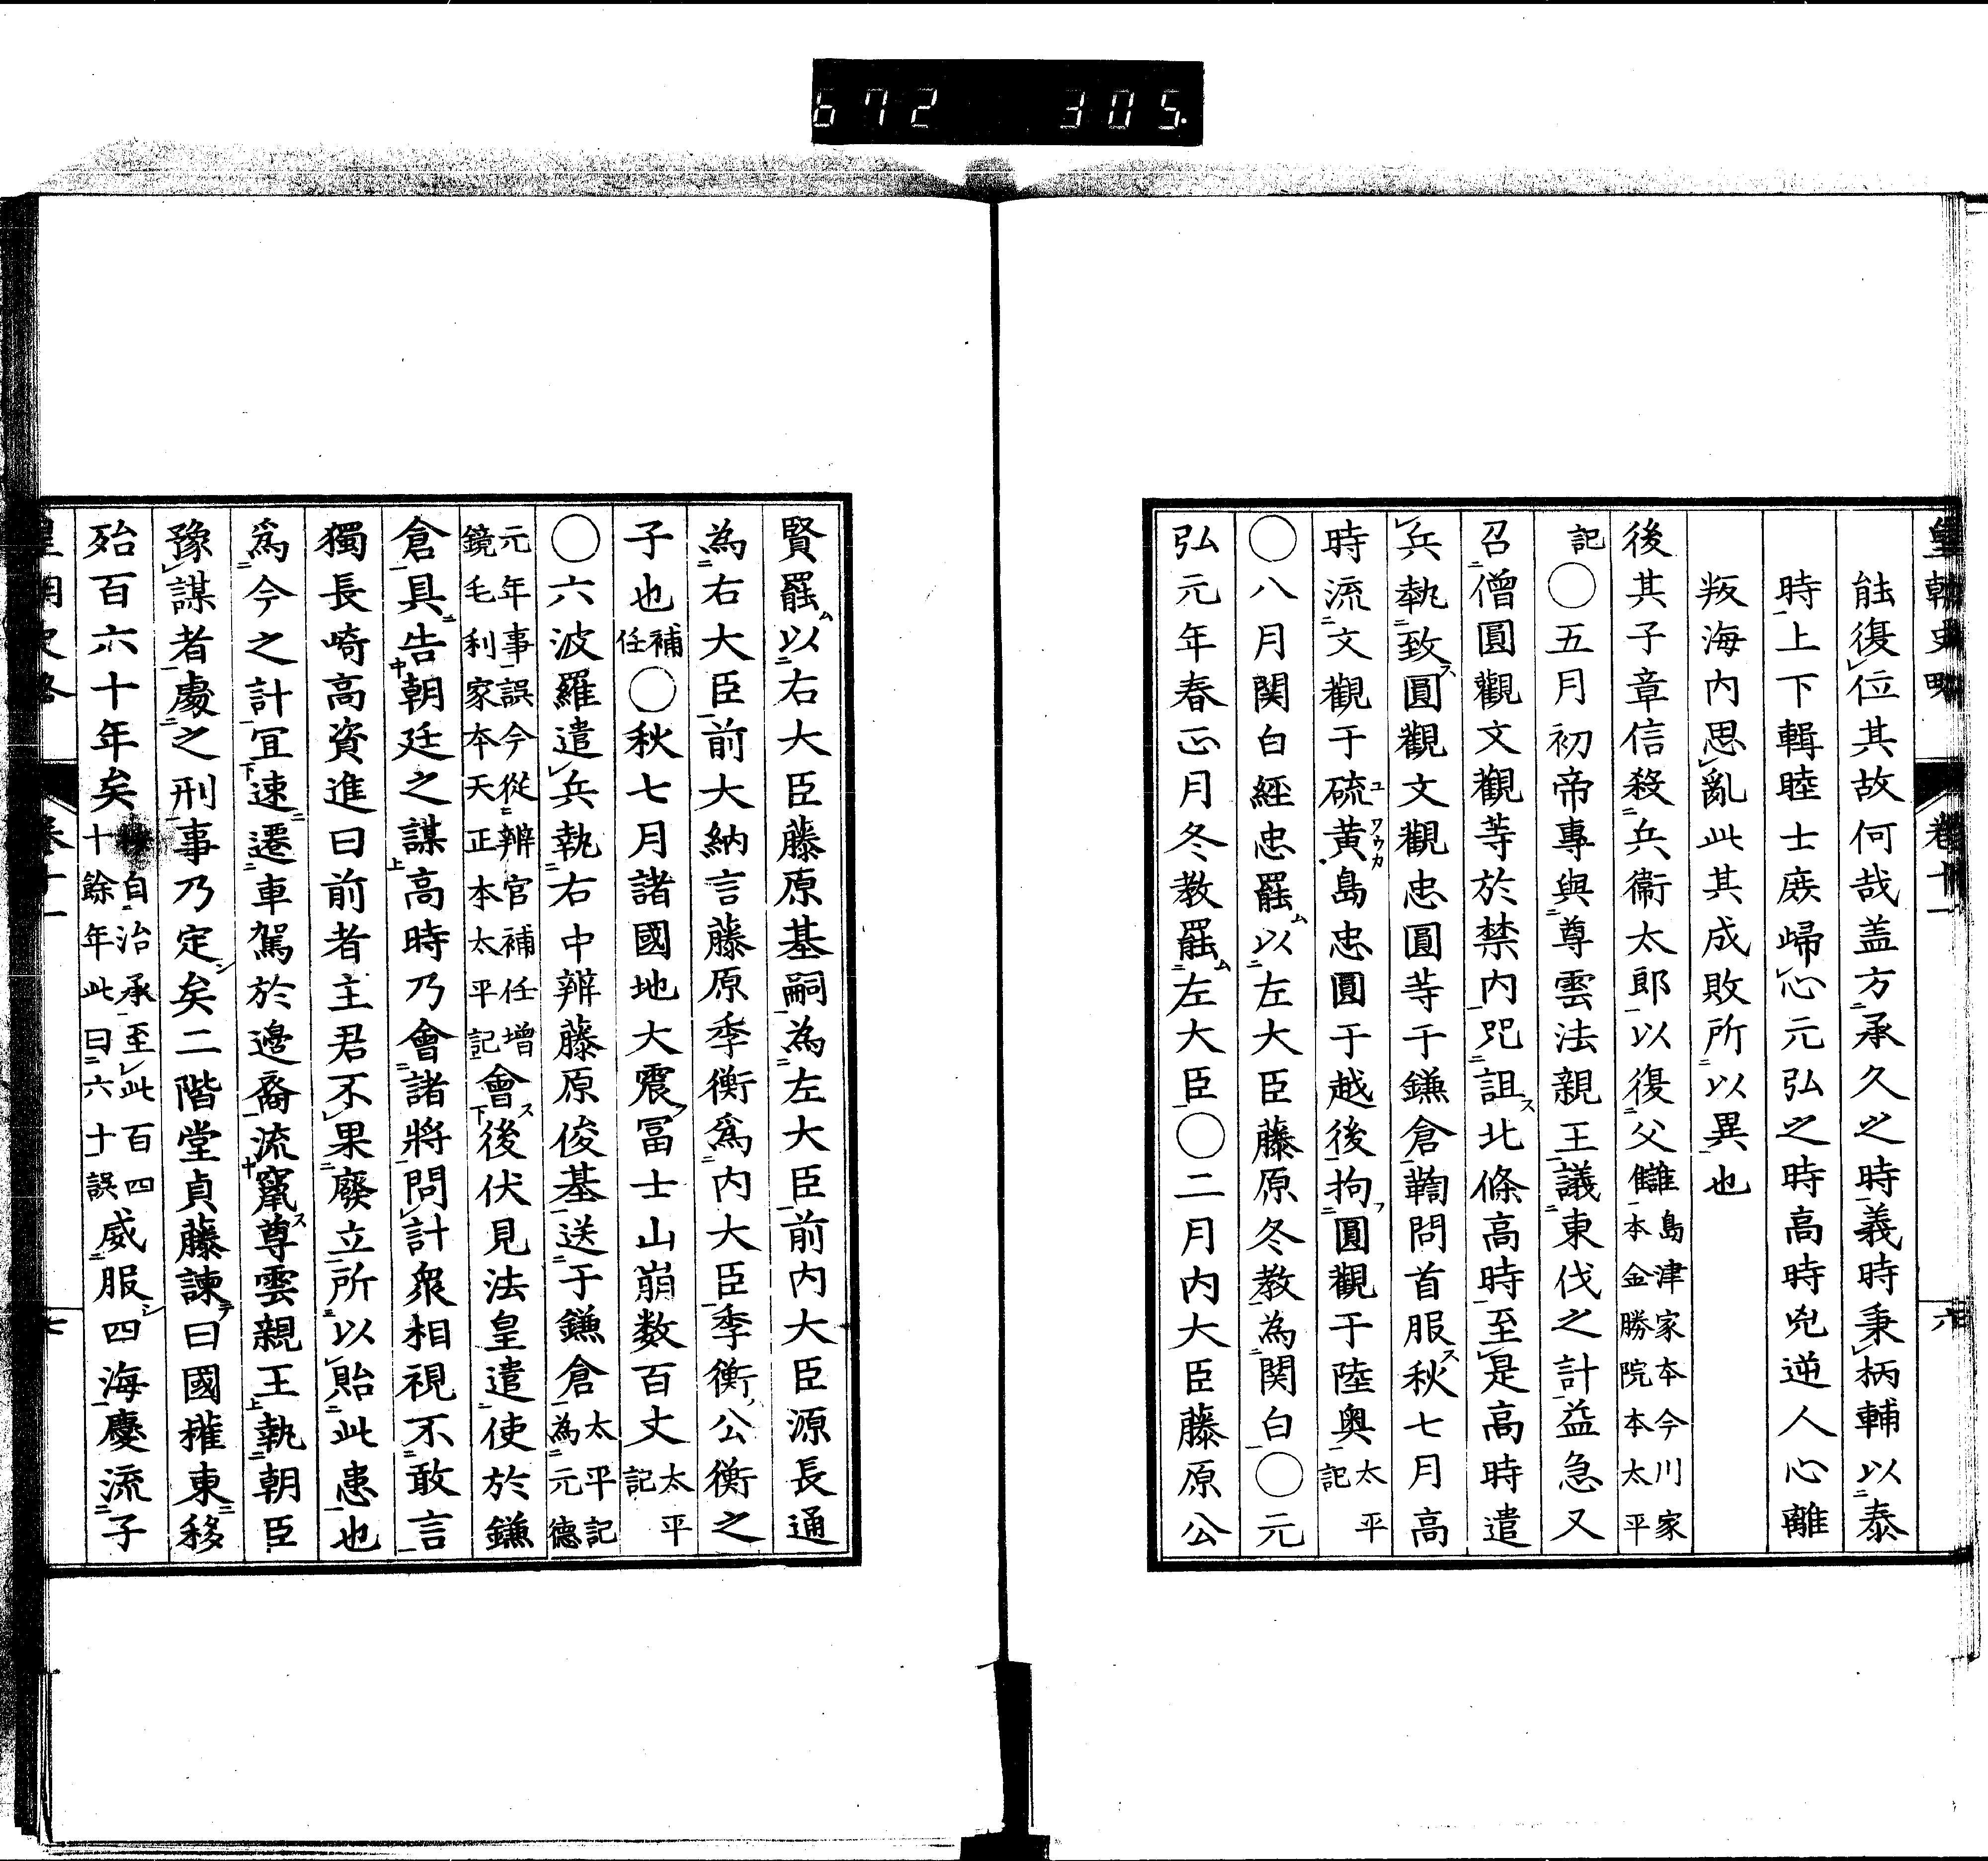 672 305
皇朝史略 卷十一 六
能復位其故何哉盖方承久之時義時秉柄輔以泰
時上下輯睦士庶歸心元弘之時高時兇逆人心離
叛海内思亂此其成敗所以異也
後其子章信殺兵衞太郎以復父讎島津家本今川家本金勝院本太平
記〇五月初帝專與尊雲法親王議東伐之計益急又
召僧圓觀文觀等於禁内咒詛北條高時至是高時遣
兵執致圓觀文觀忠圓等于鎌倉鞫問首服秋七月高
時流文觀于硫黄島忠圓于越後拘圓觀于陸奥太平記
〇八月関白經忠罷以左大臣藤原冬教為関白〇元
弘元年春正月冬教罷左大臣〇二月内大臣藤原公
賢罷以右大臣藤原基嗣為左大臣前内大臣源長通
為右大臣前大納言藤原季衡爲内大臣季衡公衡之
子也補任〇秋七月諸國地大震冨士山崩数百丈太平記
〇六波羅遣兵執右中辨藤原俊基送于鎌倉太平記為元德
元年事誤今從辨官補任增鏡毛利家本天正本太平記會後伏見法皇遣使於鎌
倉具告朝廷之謀高時乃會諸將問計衆相視不敢言
獨長崎高資進曰前者主君不果廢立所以貽此患也
爲今之計冝速遷車駕於邊裔流竄尊雲親王執朝臣
豫謀者處之刑事乃定矣二階堂貞藤諫曰國權東移
殆百六十年矣自治承至此百四十餘年此曰六十誤威服四海慶流子